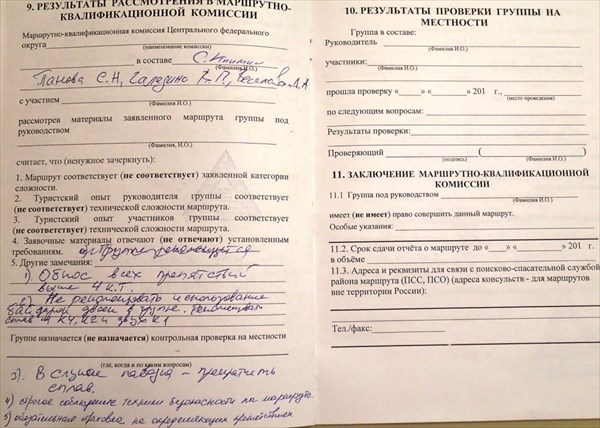 9. РЕЗУЛЬТАТЫ РАССМОТРЕНИЯ В МАРШРУТНО-
КВАЛИФИКАЦИОННОЙ КОМИССИИ
Маршрутно-квалификационная комиссия Центрального федерального
округа
(наименование комиссии)
в составе
(Фамилия И.О.)
Панова С.Н,
с участием
(Фамилия И.О.)
рассмотрев материалы заявленного маршрута группы под
руководством
(Фамилия, И.О.)
считает, что (ненужное зачеркнуть):
1. Маршрут соответствует (не соответствует) заявленной категории
сложности.
2. Туристский опыт руководителя группы соответствует
(не соответствует) технической сложности маршрута.
3. Туристский опыт участников группы соответствует
(не соответствует) технической сложности маршрута.
4. Заявочные материалы отвечают (не отвечают) установленным
требованиям.
5. Другие замечания:
1) Обнос всех препятствий
выше 4 к.т.
2) Не рекомендовать использование
байдарок двоек в группе.
Группе назначается (не назначается) контрольная проверка на местности
(где, когда и по каким вопросам)
3). В случае паводка - прекратить
сплав.
4) строгое соблюдение техники безопасности на маршруте.
5) страховка на определяющих препятствиях
10. РЕЗУЛЬТАТЫ ПРОВЕРКИ ГРУППЫ НА
МЕСТНОСТИ
Группа в составе:
Руководитель
(Фамилия И.О.)
участники:
(Фамилия И.О.)
прошла проверку «____» «________» 201 г.,
(место проведения)
по следующим вопросам:
Результаты проверки:
Проверяющий ( )
(подпись) (Фамилия И.О.)
11. ЗАКЛЮЧЕНИЕ МАРШРУТНО-КВАЛИФИКАЦИОННОЙ
КОМИССИИ
11.1 Группа под руководством
(Фамилия И.О.)
имеет (не имеет) право совершить данный маршрут.
Особые указания:
11.2. Срок сдачи отчёта о маршруте до «____» «________» 201 г.
в объёме
11.3. Адреса и реквизиты для связи с поисково-спасательной службой
района маршрута (ПСС, ПСО) (адреса консульств - для маршрутов
вне территории России):
Тел./факс: